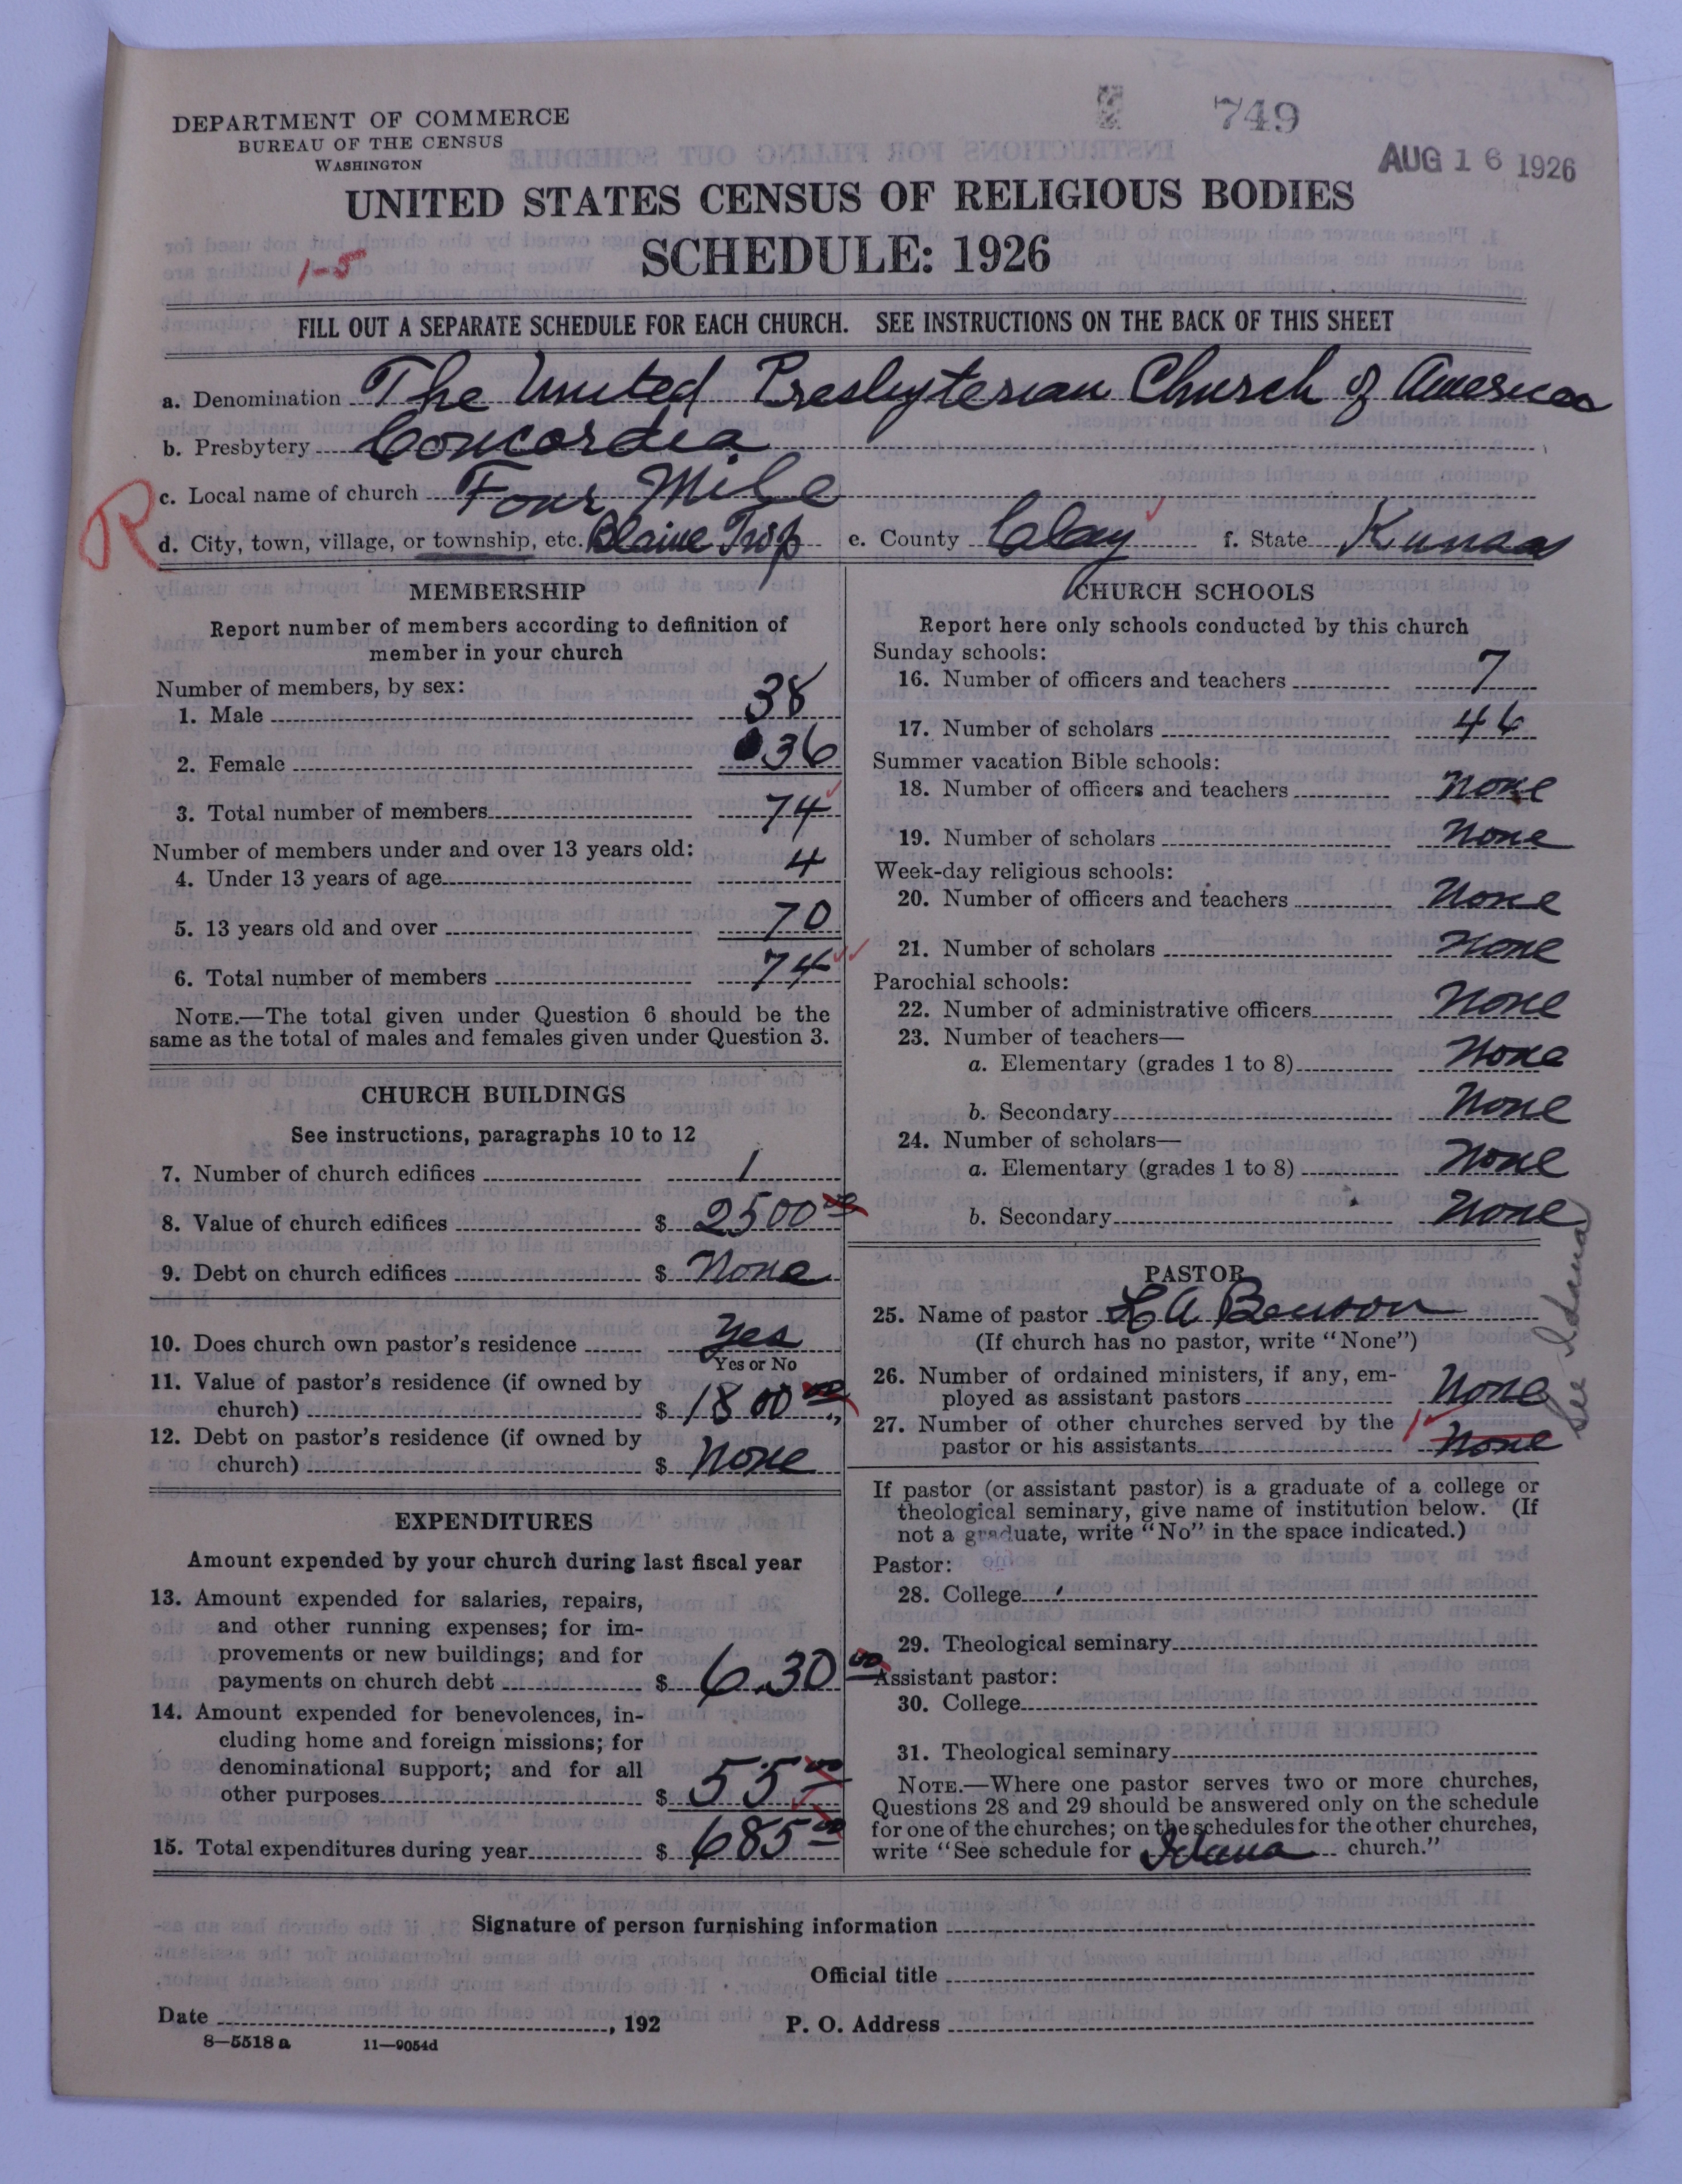 749
AUG 16 1926
DEPARTMENT OF COMMERCE
BUREAU OF THE CENSUS
WASHINGTON
UNITED STATES CENSUS OF RELIGIOUS BODIES
SCHEDULE: 1926
1-5
FILL OUT A SEPARATE SCHEDULE FOR EACH CHURCH. SEE INSTRUCTIONS ON THE BACK OF THIS SHEET
a. Denomination The United Presbyterian Church of America
b. Presbytery Concordia
c. Local name of church Four Mile
R
d. City, town, village, or township, etc. Blaine Twp e. County Clay f. State Kansas
MEMBERSHIP
Report number of members according to definition of
member in your church
Number of members, by sex:
1. Male 38
2. Female 36
3. Total number of members 74
Number of members under and over 13 years old:
4. Under 13 years of age 4
5. 13 years old and over 70
6. Total number of members 74
NOTE.—The total given under Question 6 should be the
same as the total of males and females given under Question 3.
CHURCH BUILDINGS
See instructions, paragraphs 10 to 12
7. Number of church edifices 1
8. Value of church edifices $ 2500 00
9. Debt on church edifices $ None
10. Does church own pastor's residence Yes
Yes or No
11. Value of pastor's residence (if owned by
church) $ 1800 00
12. Debt on pastor's residence (if owned by
church) $ None
EXPENDITURES
Amount expended by your church during last fiscal year
13. Amount expended for salaries, repairs,
and other running expenses; for im-
provements or new buildings; and for
payments on church debt $ 6.30 00
14. Amount expended for benevolences, in-
cluding home and foreign missions; for
denominational support; and for all
other purposes $ 55 00
15. Total expenditures during year $ 685 00
CHURCH SCHOOLS
Report here only schools conducted by this church
Sunday schools:
16. Number of officers and teachers 7
17. Number of scholars 46
Summer vacation Bible schools:
18. Number of officers and teachers None
19. Number of scholars None
Week-day religious schools:
20. Number of officers and teachers None
21. Number of scholars None
Parochial schools:
22. Number of administrative officers None
23. Number of teachers—
a. Elementary (grades 1 to 8) None
b. Secondary None
24. Number of scholars—
a. Elementary (grades 1 to 8) None
b. Secondary None
PASTOR
25. Name of pastor L A Benson
(If church has no pastor, write "None")
26. Number of ordained ministers, if any, em-
ployed as assistant pastors None
27. Number of other churches served by the 1
pastor or his assistants None
See Idana
If pastor (or assistant pastor) is a graduate of a college or
theological seminary, give name of institution below. (If
not a graduate, write "No" in the space indicated.)
Pastor:
28. College
29. Theological seminary
Assistant pastor:
30. College
31. Theological seminary
NOTE.—Where one pastor serves two or more churches,
Questions 28 and 29 should be answered only on the schedule
for one of the churches; on the schedules for the other churches,
write "See schedule for Idana church."
Signature of person furnishing information
Official title
Date , 192 P. O. Address
8—5518 a 11—9054d